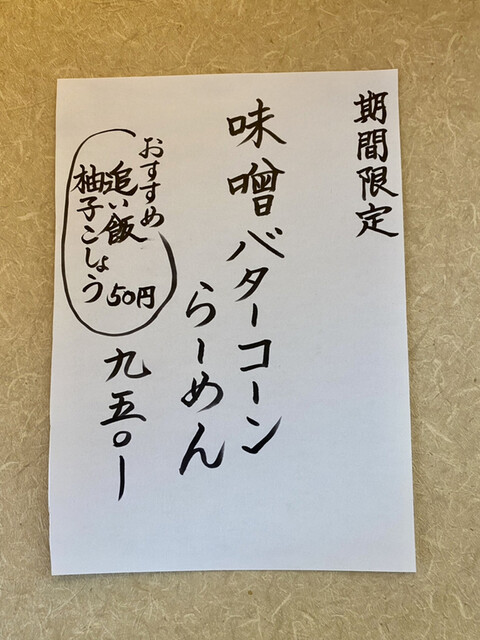 期間限定
味噌バターコーン
らーめん
九五〇ー
おすすめ
追い飯 50円
柚子こしょう